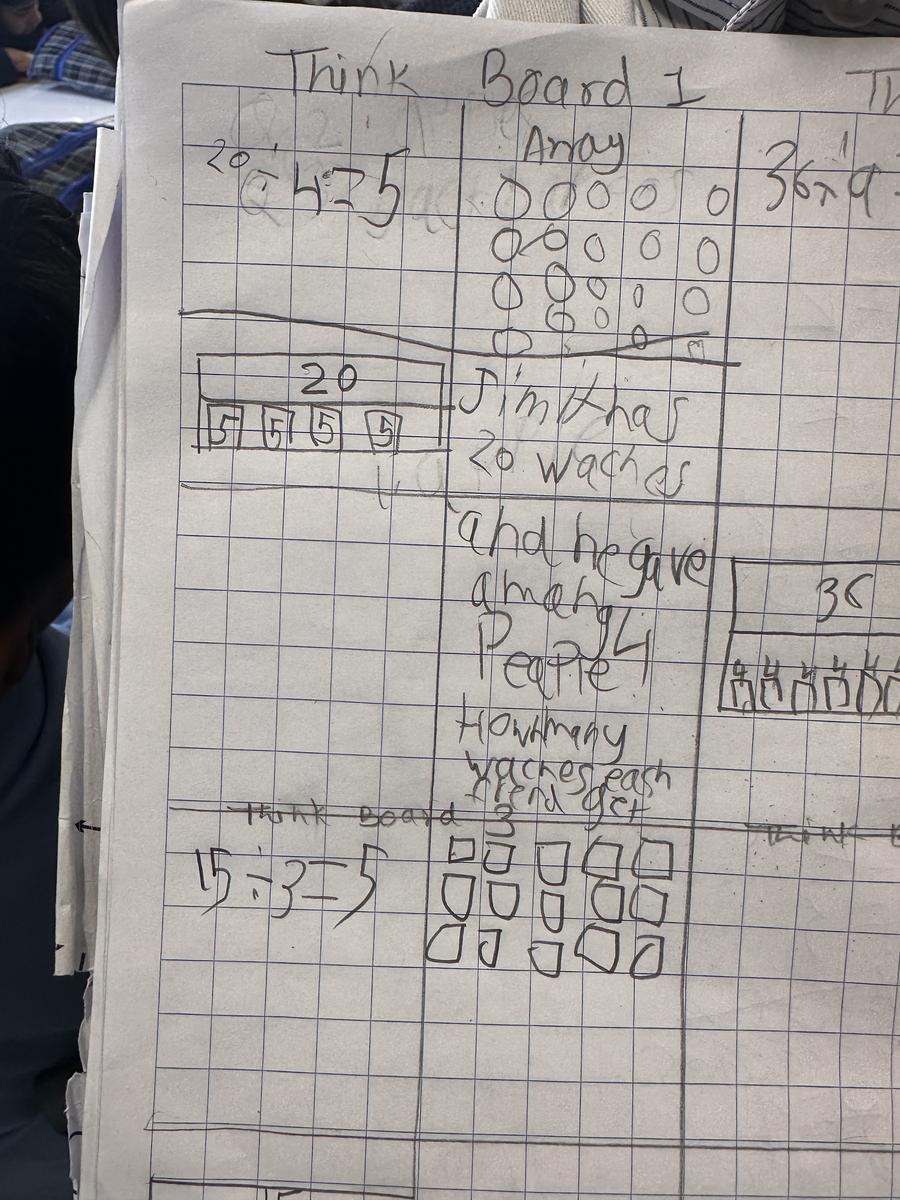 Think Board 1
20 ÷ 4 = 5
Array
20
5 5 5 5
Jimmy has
20 waches
and he gave
among 4
Peaple
How many
waches each
frend get
36 ÷ 9
36
4 4 4 4 4
Think Board 3
15 ÷ 3 = 5
Think